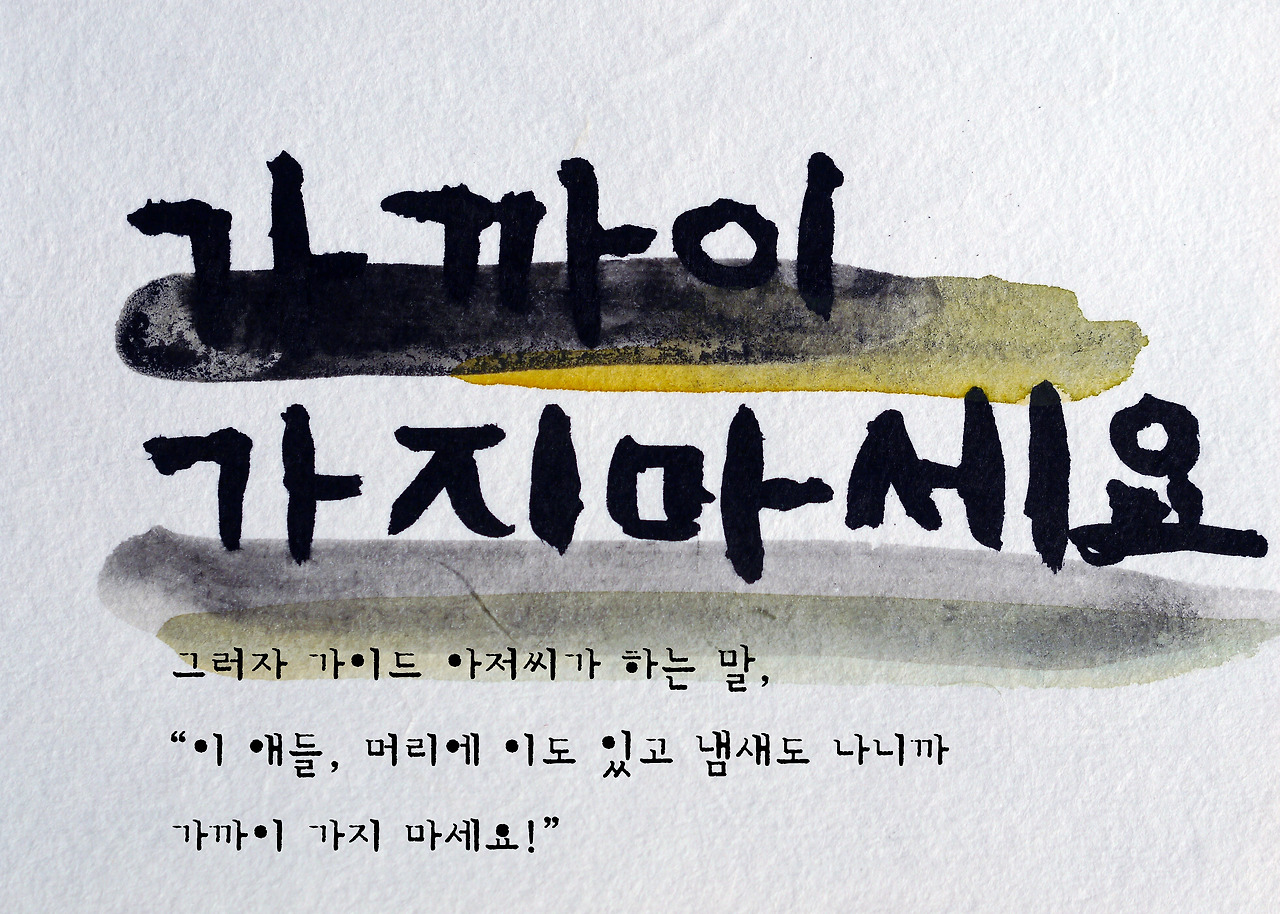 가까이
가지마세요
그러자 가이드 아저씨가 하는 말,
“이 애들, 머리에 이도 있고 냄새도 나니까
가까이 가지 마세요!”